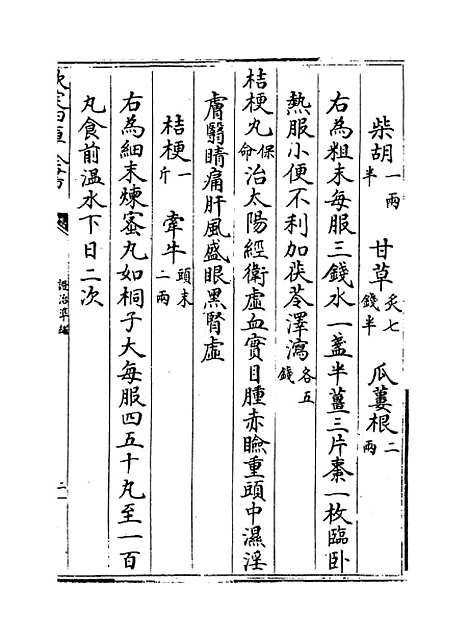 柴胡一兩半 甘草炙七錢半 瓜蔞根二兩
右為粗末每服三錢水一盞半薑三片棗一枚臨卧
熱服小便不利加茯苓澤瀉各五錢
桔梗丸保命治太陽經衛虛血實目腫赤瞼重頭中濕淫
膚翳睛痛肝風盛眼黑腎虛
桔梗一斤 牽牛頭末二兩
右為細末煉蜜丸如桐子大每服四五十丸至一百
丸食前溫水下日二次
欽定四庫全書
證治準繩